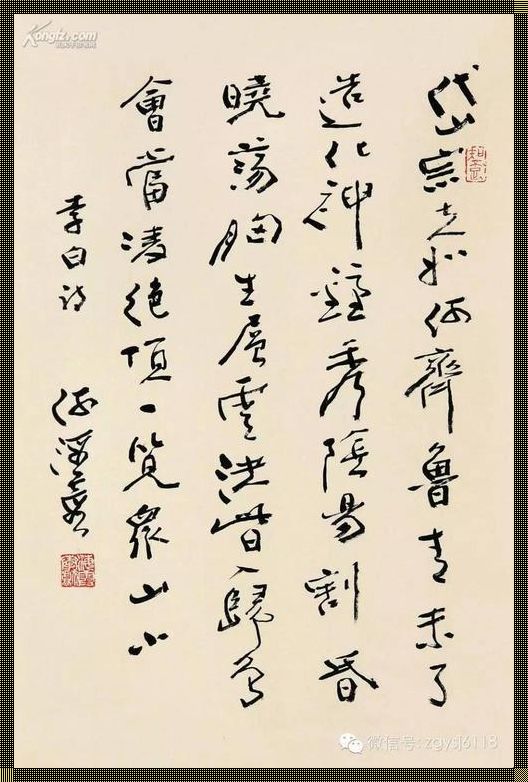 岱宗夫如何齊魯青未了
造化神鍾秀陰陽割昏
曉蕩胸生層雲決眥入歸鳥
會當凌絕頂一覽衆山小
李白詩
Kongfz.com
微信号: zgysj6118